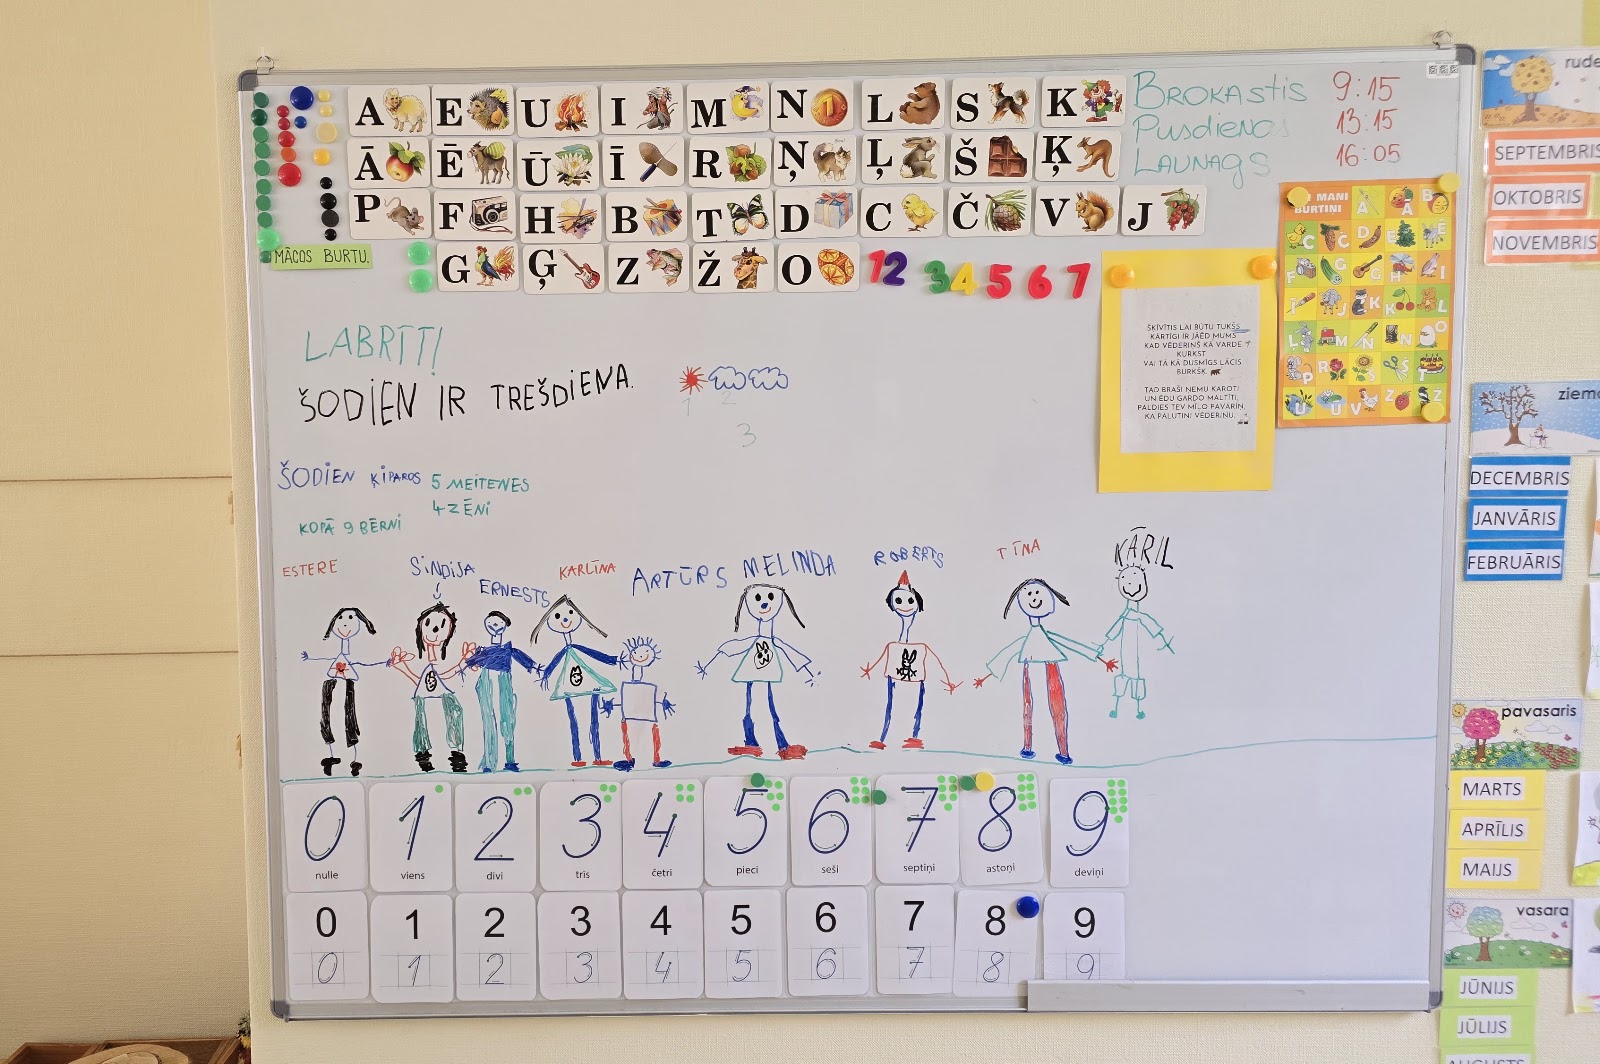 A E U I M N L S K
Ā Ē Ū Ī R Ņ Ļ Š Ķ
P F H B T D C Č V J
G Ģ Z Ž O
1 2 3 4 5 6 7
MĀCOS BURTU.
BROKASTIS 9:15
PUSDIENAS 13:15
LAUNAGS 16:05
LABRĪT!
ŠODIEN IR TREŠDIENA.
1 2
3
ŠODIEN ĶIPAROS 5 MEITENES
4 ZĒNI
KOPĀ 9 BĒRNI
ESTERE
SINDIJA
ERNESTS
KARLĪNA
ARTŪRS
MELINDA
ROBERTS
TĪNA
KĀRIL
ŠĶĪVĪTIS LAI BŪTU TUKŠS
KĀRTĪGI IR JĀĒD MUMS
KAD VĒDERIŅŠ KĀ VARDE
KURKST
VAI TĀ KĀ DUSMĪGS LĀCIS
BURKŠĶ.
TAD BRAŠI ŅEMU KAROTI
UN ĒDU GARDO MALTĪTI,
PALDIES TEV MĪĻO PAVĀRIŅ,
KA PALUTINI VĒDERIŅU.
MANI
BURTIŅI
0 1 2 3 4 5 6 7 8 9
nulle viens divi trīs četri pieci seši septiņi astoņi deviņi
0 1 2 3 4 5 6 7 8 9
0 1 2 3 4 5 6 7 8 9
SEPTEMBRIS
OKTOBRIS
NOVEMBRIS
DECEMBRIS
JANVĀRIS
FEBRUĀRIS
pavasaris
MARTS
APRĪLIS
MAIJS
vasara
JŪNIJS
JŪLIJS